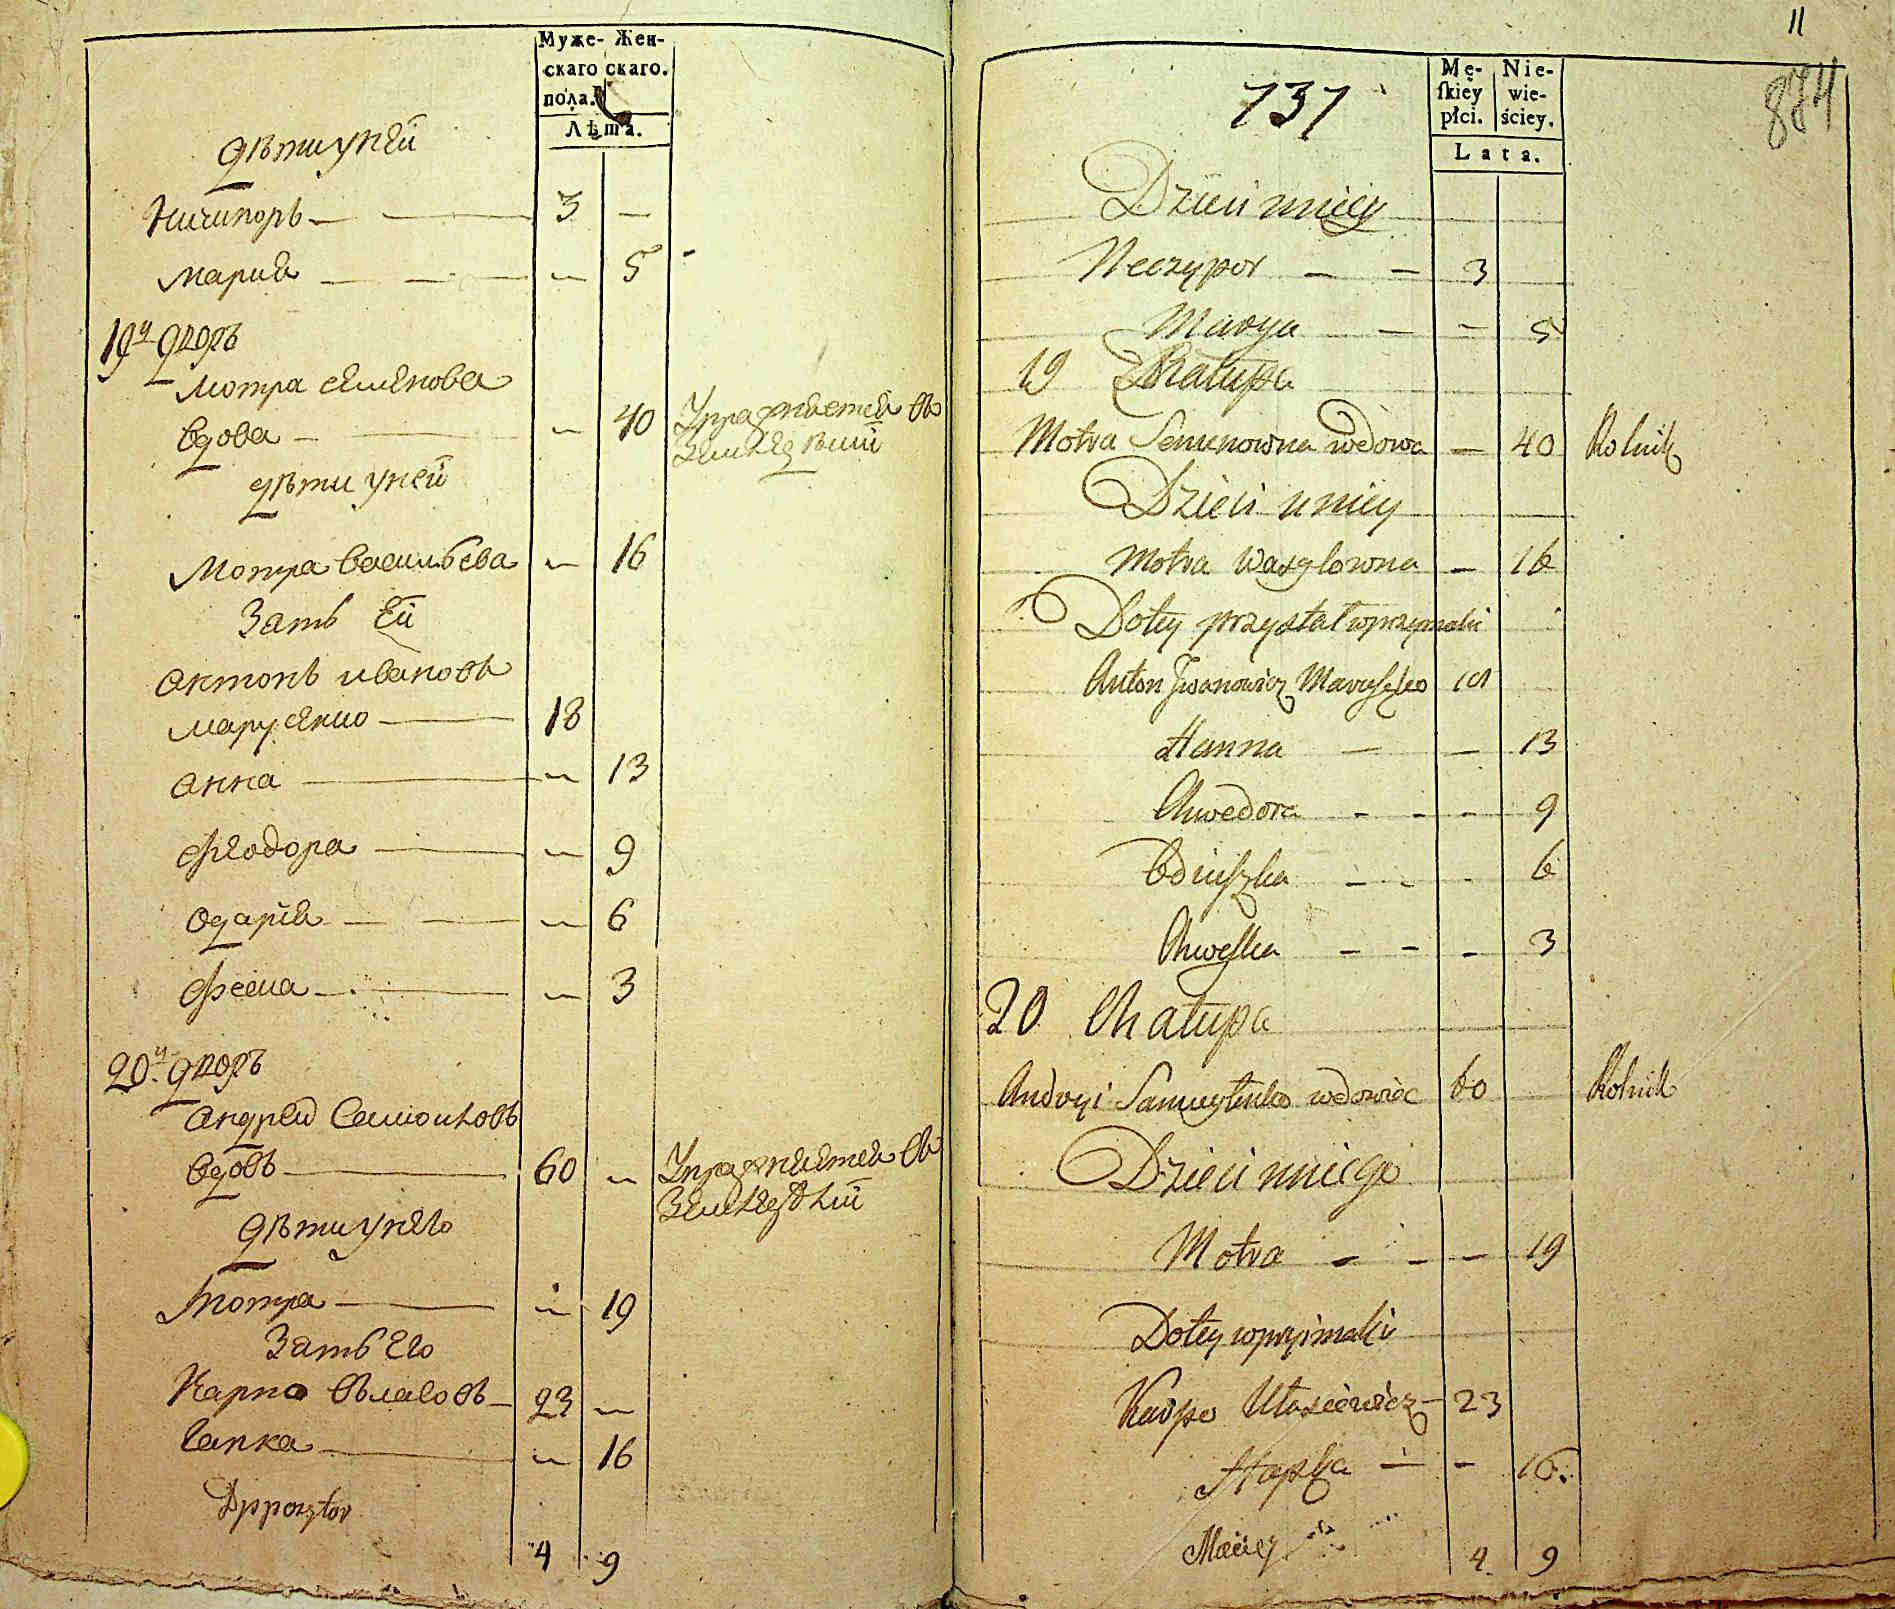 Муже- Жен-
скаго скаго.
пола.
Лѣта.
дѣти у ней
Ничипоръ 3
Мария 5
19й дворъ
Мотра Семенова
вдова 40 Упражняется въ
Земледѣлии
дѣти у ней
Мотра Васильева 16
Зять Ей
Антонъ Ивановъ
Марусенко 18
Анна 13
Феодора 9
Одария 6
20й дворъ
Андрей Самойловъ
вдовъ 60 Упражняется въ
Земледѣлии
дѣти у него
Мотра 19
Зять Его
Карпо Власовъ 23
Гапка 16
4 9
11
874
737
Mę- Nie-
skiey wie-
płci. ściey.
Lata.
Dzieci u niey
Neczypor 3
Marya 5
19 Chałupa
Motra Semenowna wdowa 40 Rolnik
Dzieci u niey
Motra Wasylowna 16
Do tey przystał w przymaki
Anton Iwanowicz
Hanna 13
Chwedora 9
6
Chweska 3
20 Chałupa
Andryi Samuylenko wdowiec 60 Rolnik
Dzieci u niego
Motra 19
Do tey w pryimaki
Karpo Ułasiewicz 23
Hapka 16
Maciey
4 9